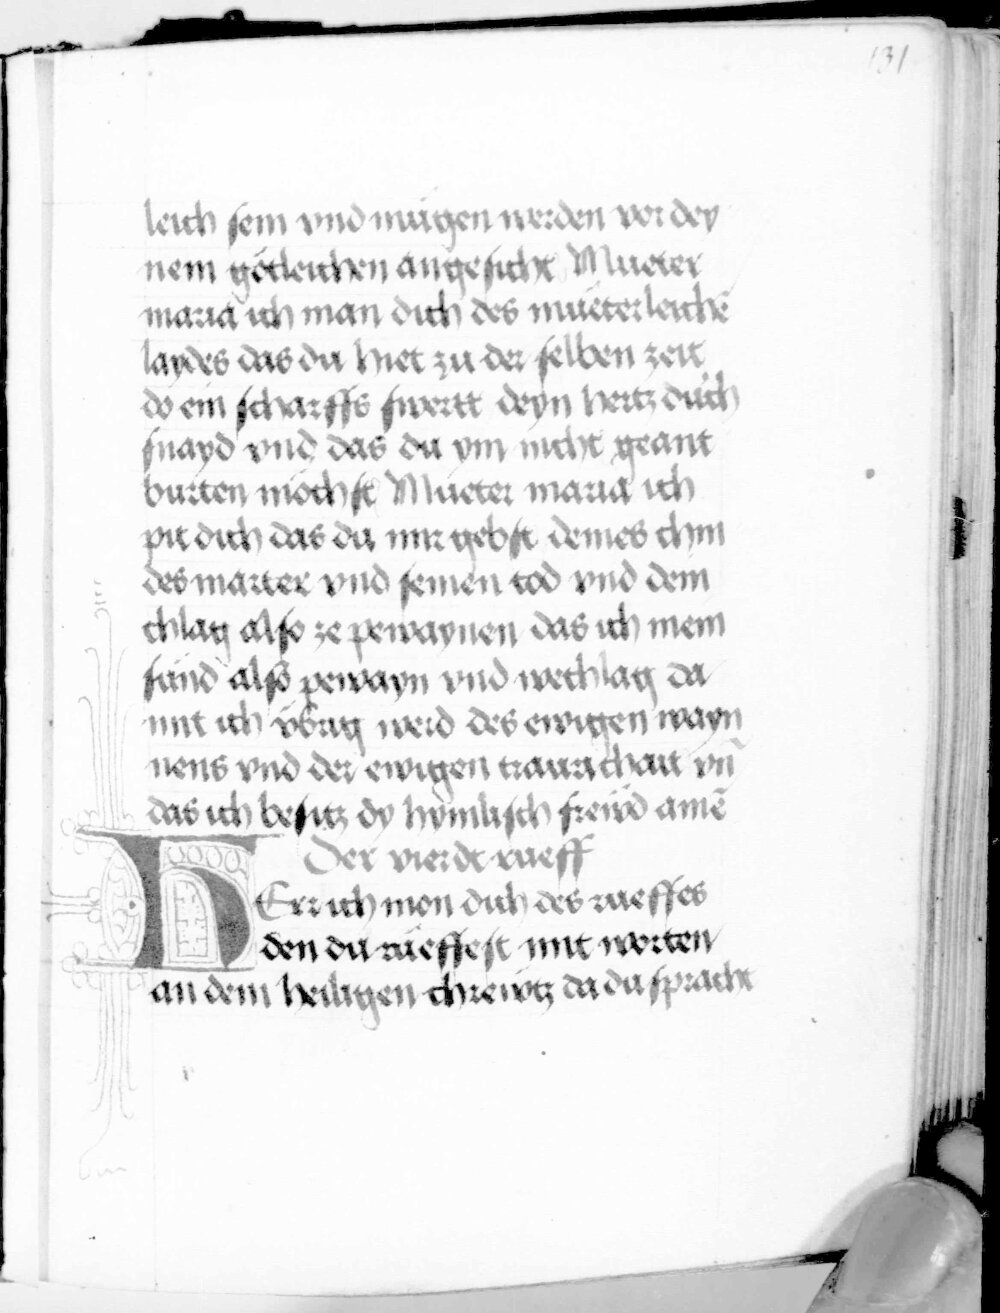 131
leich sein vnd mügen werden vor dey
nem götleichen angesicht Mueter
maria ich man dich des müeterleichē
laydes das du hiet zu der selben zeit
do ein scharffs swertt deyn hertz durch
snayd vnd das du ym nicht geant
burten möchst Mueter maria ich
pit dich das du mir gebst deines chin
des marter vnd seinen tod vnd dein
chlag also ze pewaynen das ich mein
sünd also pewayn vnd wechlag da
mit ich vbrig werd des ewigen wayn
nens vnd der ewigen traurichait vn̄
das ich besitz dy hymlisch frewd amē
Der vierdt rueff
HErr ich mon dich des rueffes
den du rüeffest mit worten
an dem heiligen chrewtz da du spracht